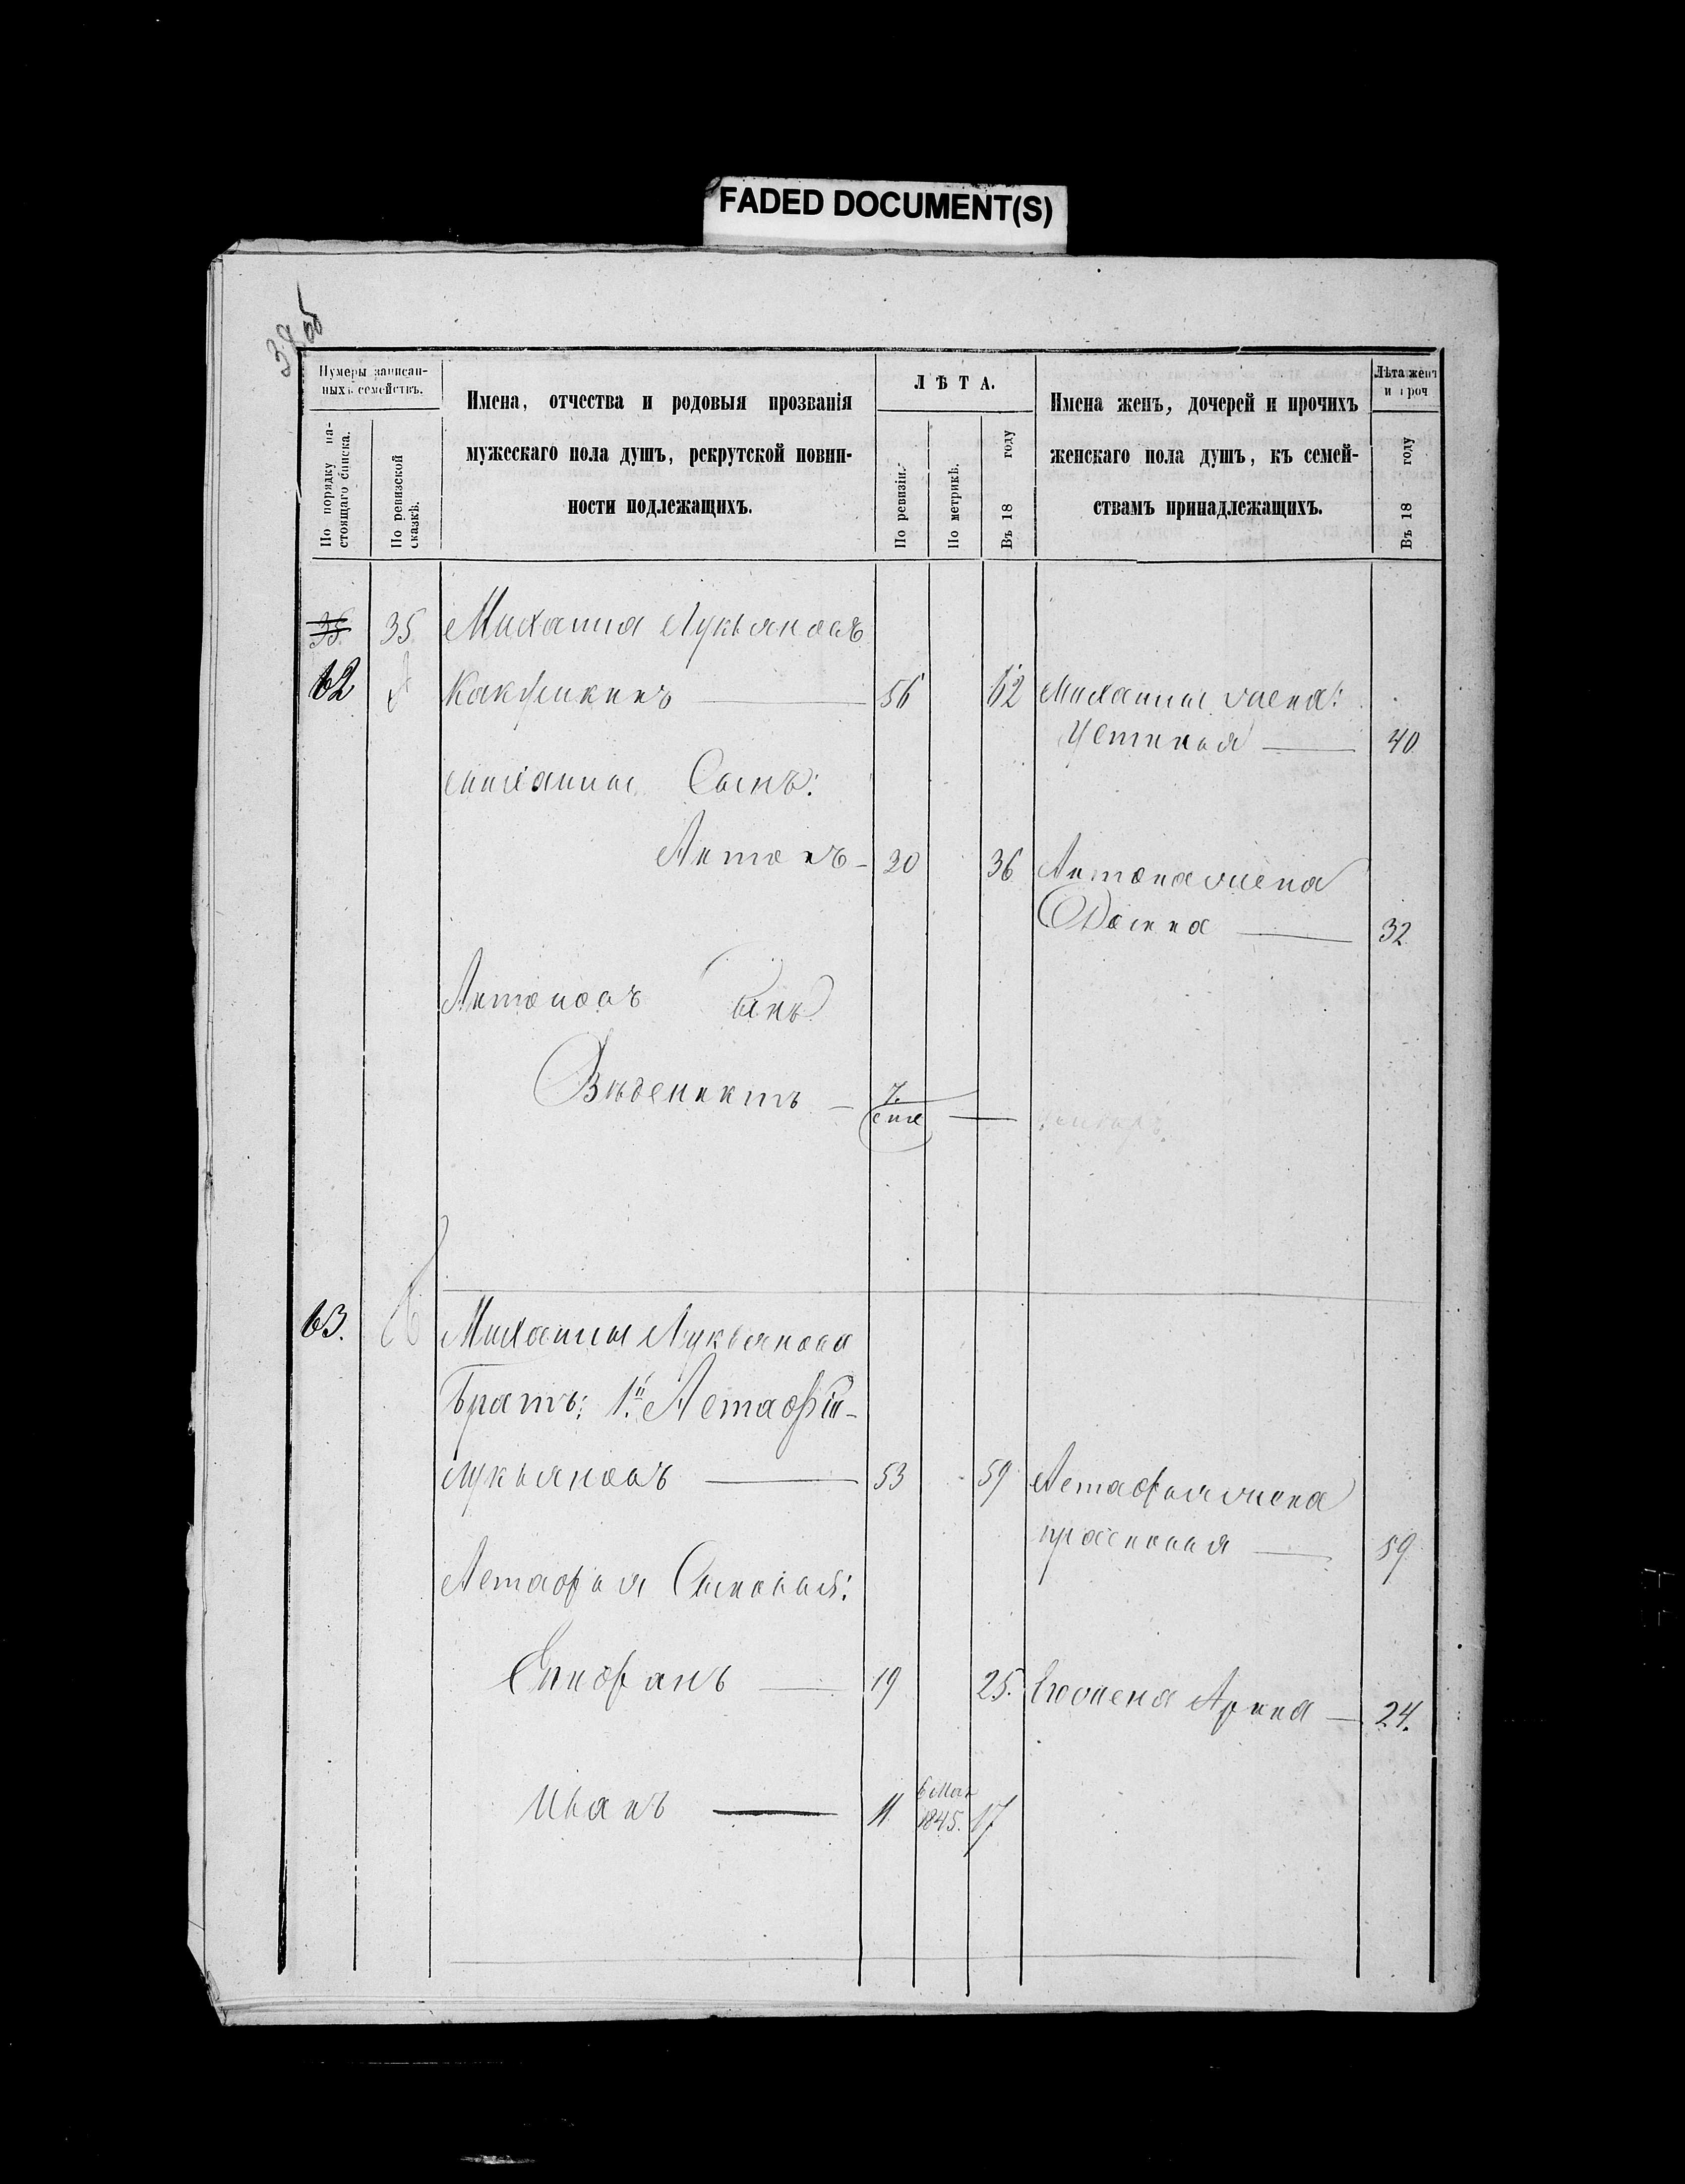 FADED DOCUMENT(S)
38 об
Нумеры записан-
ныхъ семействъ.
По порядку на-
стоящаго списка.
По ревизской
сказкѣ.
Имена, отчества и родовыя прозванія
мужескаго пола душъ, рекрутской повин-
ности подлежащихъ.
ЛѢТА.
По ревизіи.
По метрикѣ.
Въ 18 году
Имена женъ, дочерей и прочихъ
женскаго пола душъ, къ семей-
ствамъ принадлежащихъ.
Лѣта женъ
и проч
Въ 18 году
35. 35 Михаила Лукьяновъ
62 56 62 Михаилы жена:
Устинья 40
Михаилы Сынъ:
Антонъ 30 36 Антона жена
32
Антоновъ сынъ
Венедиктъ
63. Михаилы Лукьянова
Братъ: 1й Астафій
Лукьяновъ 53 59 Астафья жена
Прасковья 59
Астафья Сыновья:
Епифанъ 19 25. Его жена Арина 24.
Иванъ 11 6 Мая
1845. 17